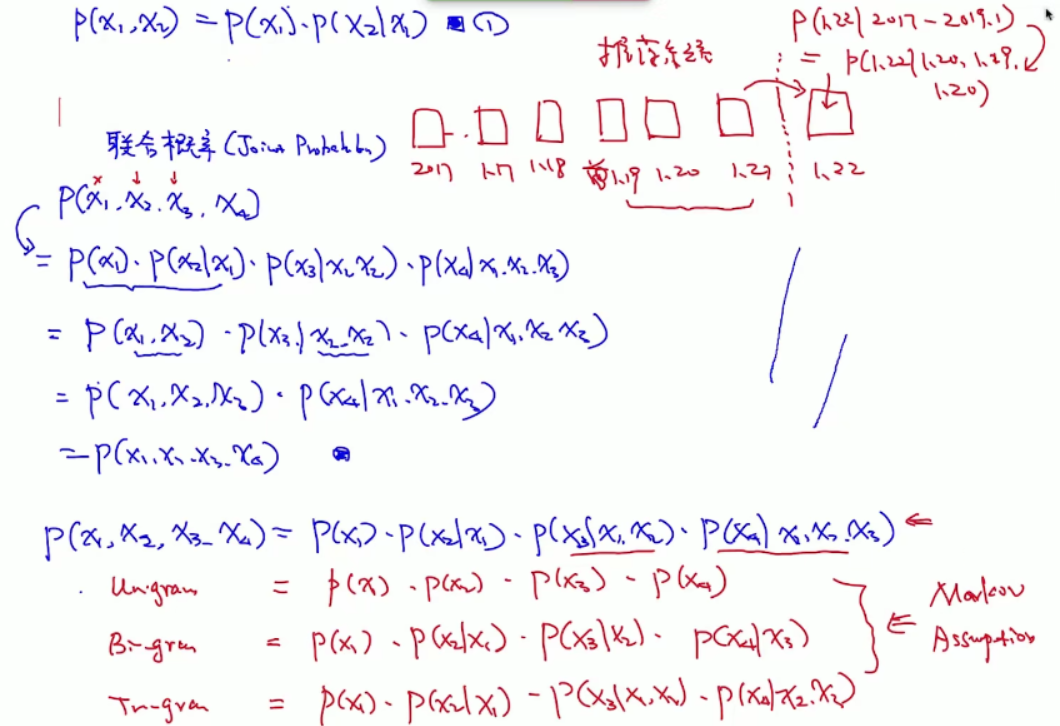 P(x₁,x₂) = P(x₁)·P(x₂|x₁) ①
P(1.22|2017-2019.1)
= P(1.22|1.20, 1.19,
1.20)
联合概率 (Joint Probability)
2017 1.17 1.18 1.19 1.20 1.22
P(x₁.x₂.x₃.x₄)
= P(x₁)·P(x₂|x₁)·P(x₃|x₁x₂)·P(x₄|x₁.x₂.x₃)
= P(x₁,x₂)·P(x₃|x₁.x₂)·P(x₄|x₁.x₂x₃)
= P(x₁,x₂,x₃)·P(x₄|x₁.x₂.x₃)
= P(x₁.x₂.x₃.x₄)
P(x₁,x₂,x₃-x₄) = P(x₁)·P(x₂|x₁)·P(x₃|x₁.x₂)·P(x₄|x₁.x₂.x₃) ⇐
Un-gram = P(x)·P(x₂)-P(x₃)-P(x₄)
Bi-gram = P(x₁)·P(x₂|x₁)·P(x₃|x₂)·P(x₄|x₃)
Tri-gram = P(x₁)·P(x₂|x₁)-P(x₃|x₁,x₂)·P(x₄|x₂.x₃)
⇐ Markov
Assumption